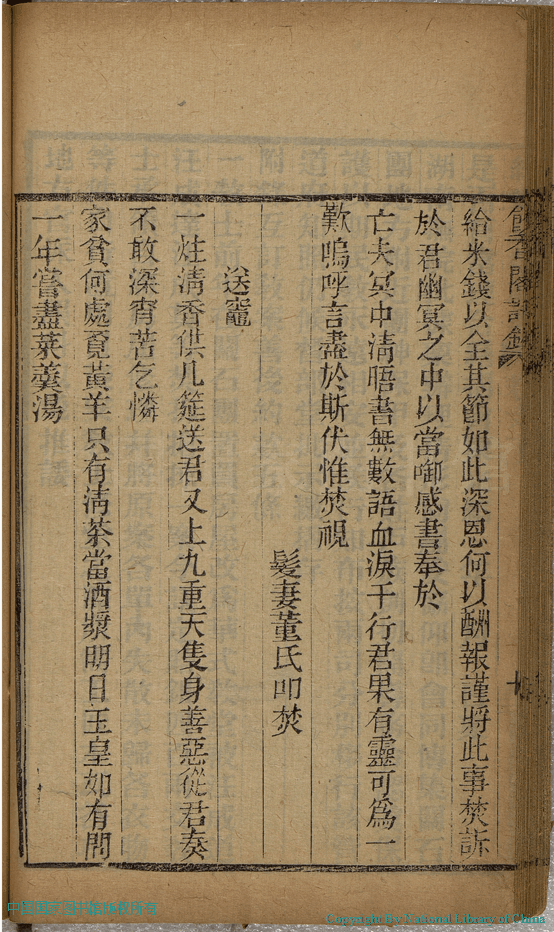 給米錢以全其節如此深恩何以酬報謹將此事焚訴
於君幽冥之中以當啣感書奉於
亡夫冥中清晤書無數語血淚千行君果有靈可爲一
歎嗚呼言盡於斯伏惟焚視
髮妻董氏叩焚
送竈
一炷清香供几筵送君又上九重天隻身善惡從君奏
不敢深宵苦乞憐
家貧何處覓黃羊只有清茶當酒漿明日玉皇如有問
一年嘗盡菜羹湯
Copyright By National Library of China